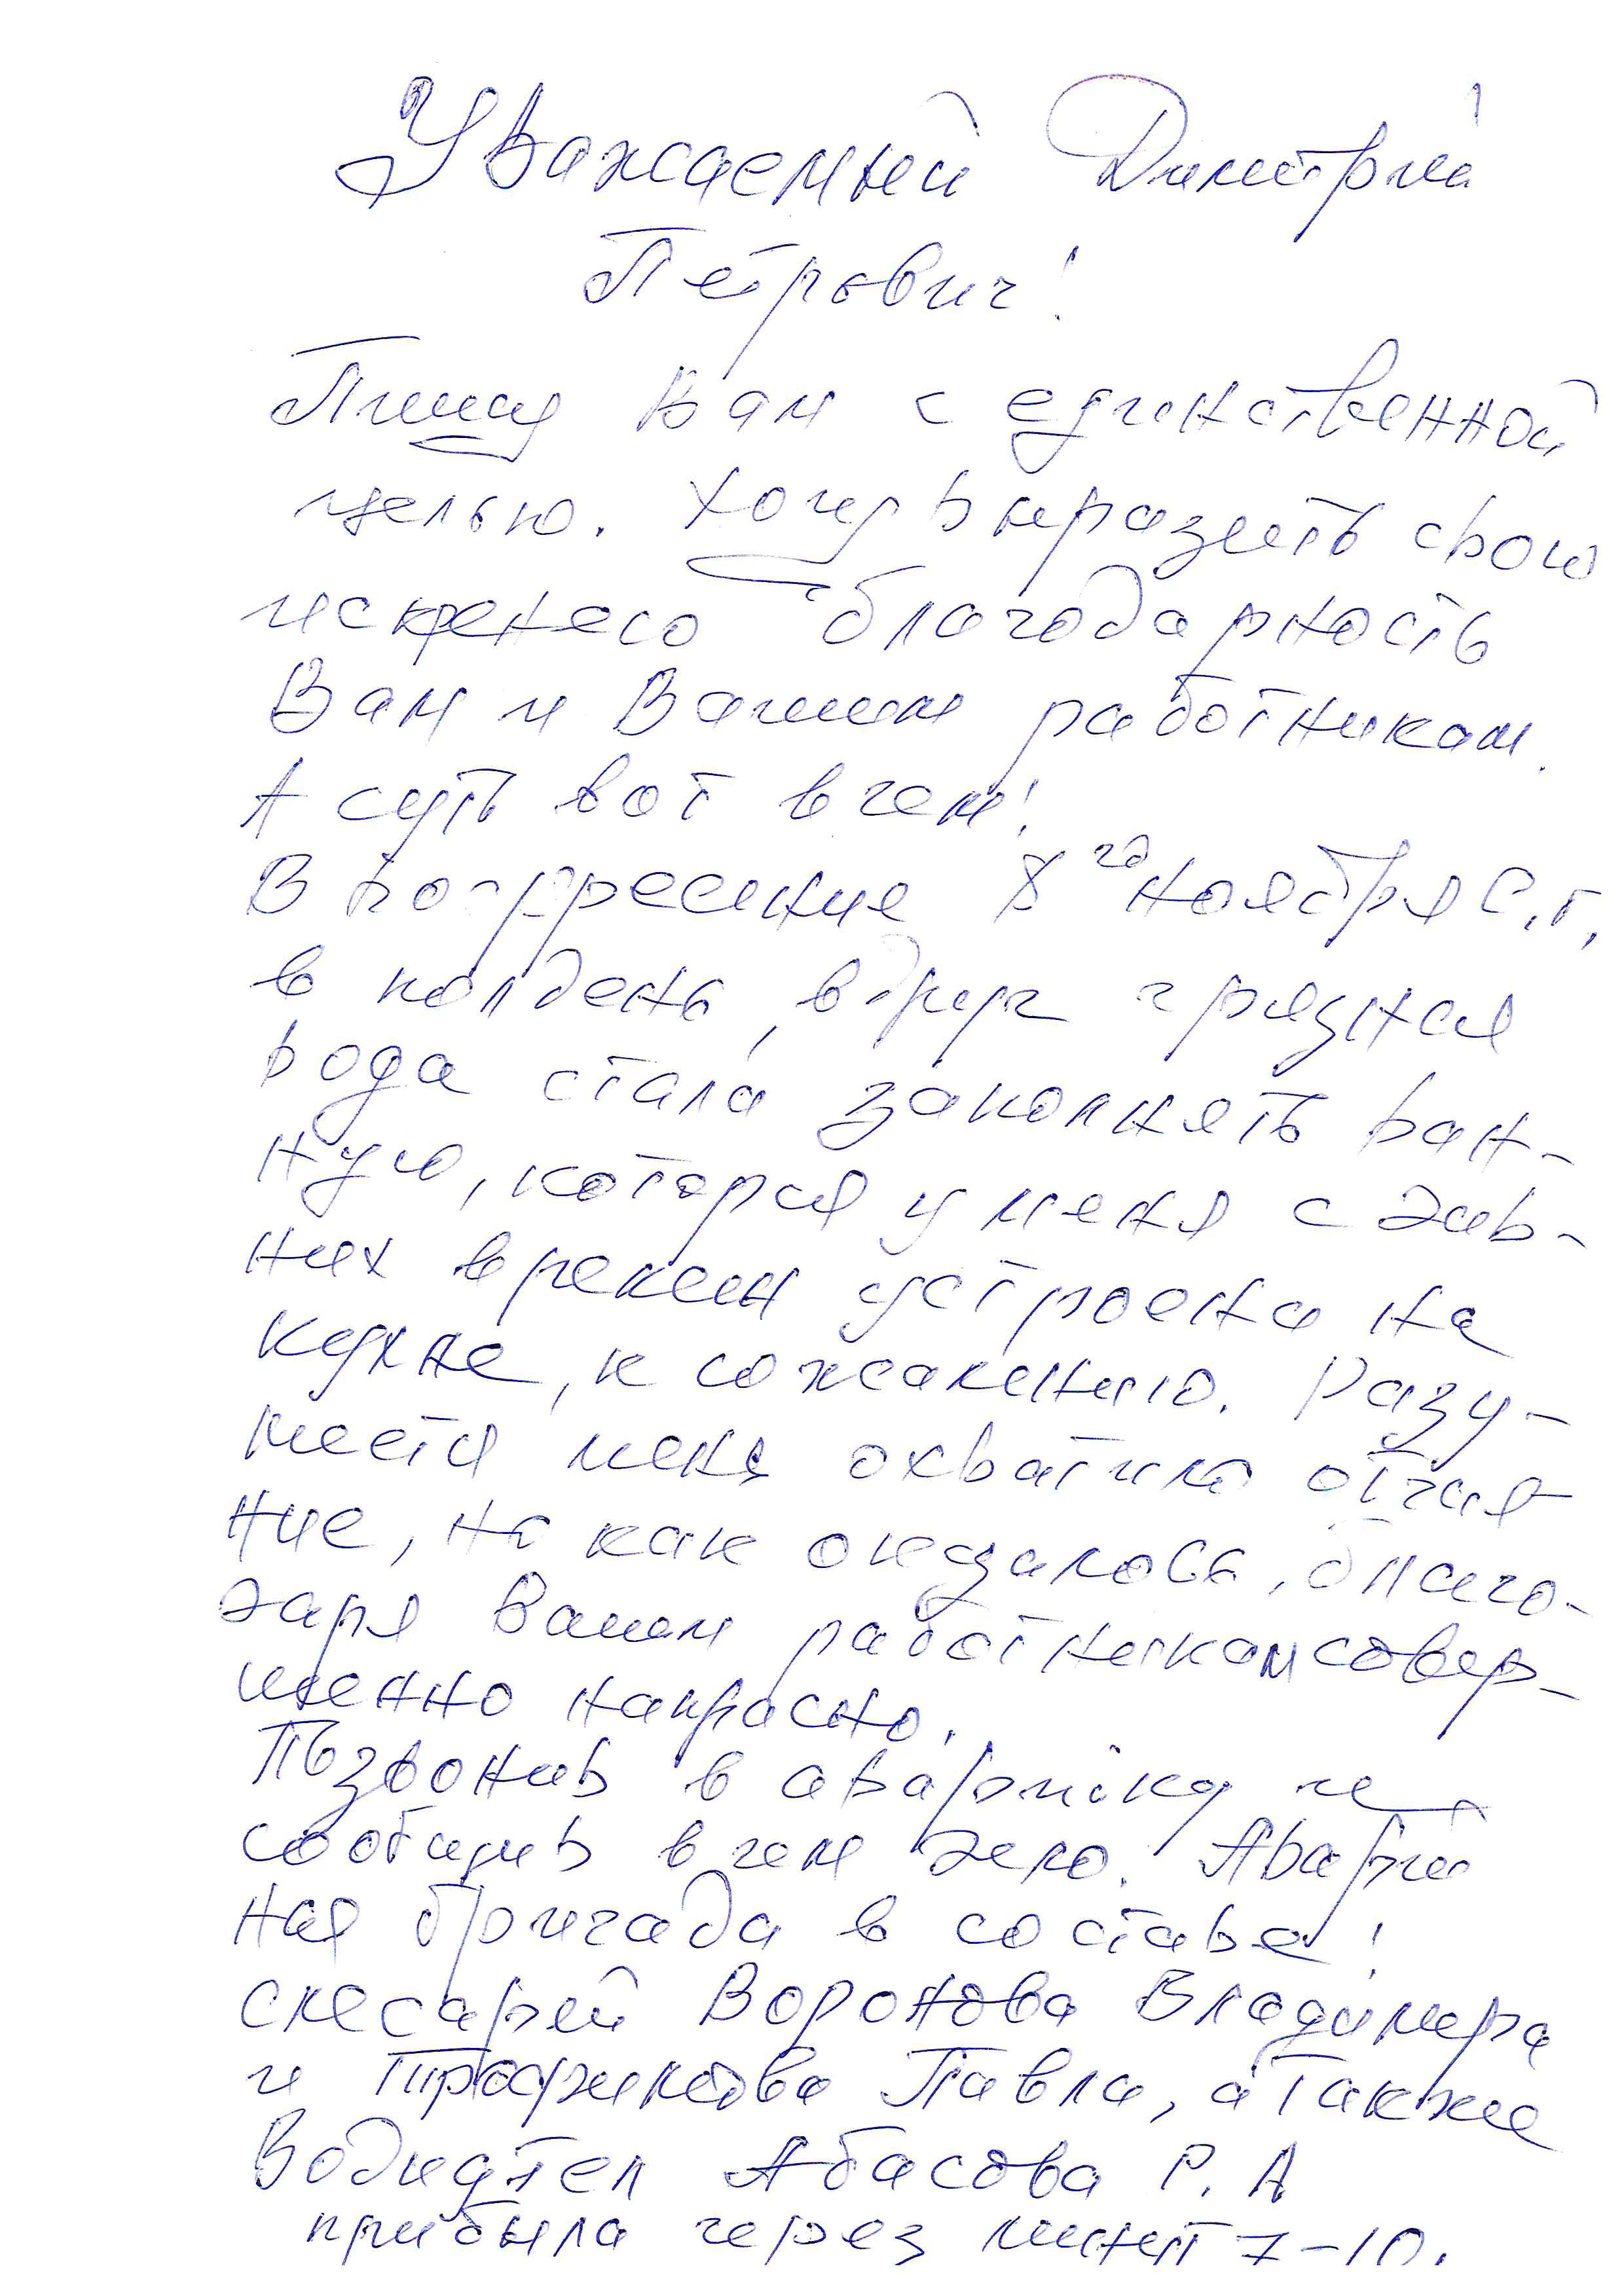 Уважаемый Димитрий
Петрович!
Пишу Вам с единственной
целью. Хочу выразить свою
искренею благодарность
Вам и Вашим работникам.
А суть вот в чем!
В воскресение 8го ноября с.г.
в полдень, вдруг грязная
вода стала заполнять ван-
ную, которая у меня с дав-
них времен устроена на
кухне, к сожалению. Разу-
меется меня охватило отчая-
ние, но как оказалось, благо-
даря Вашим работникам совер-
шенно напрасно.
Позвонив в аварийку и
сообщив в чем дело. Аварий
ная бригада в составе!
слесарей Воронова Владимира
и Трофимова Павла, а также
Водител Абасова Р. А
прибыла через минут 7-10.